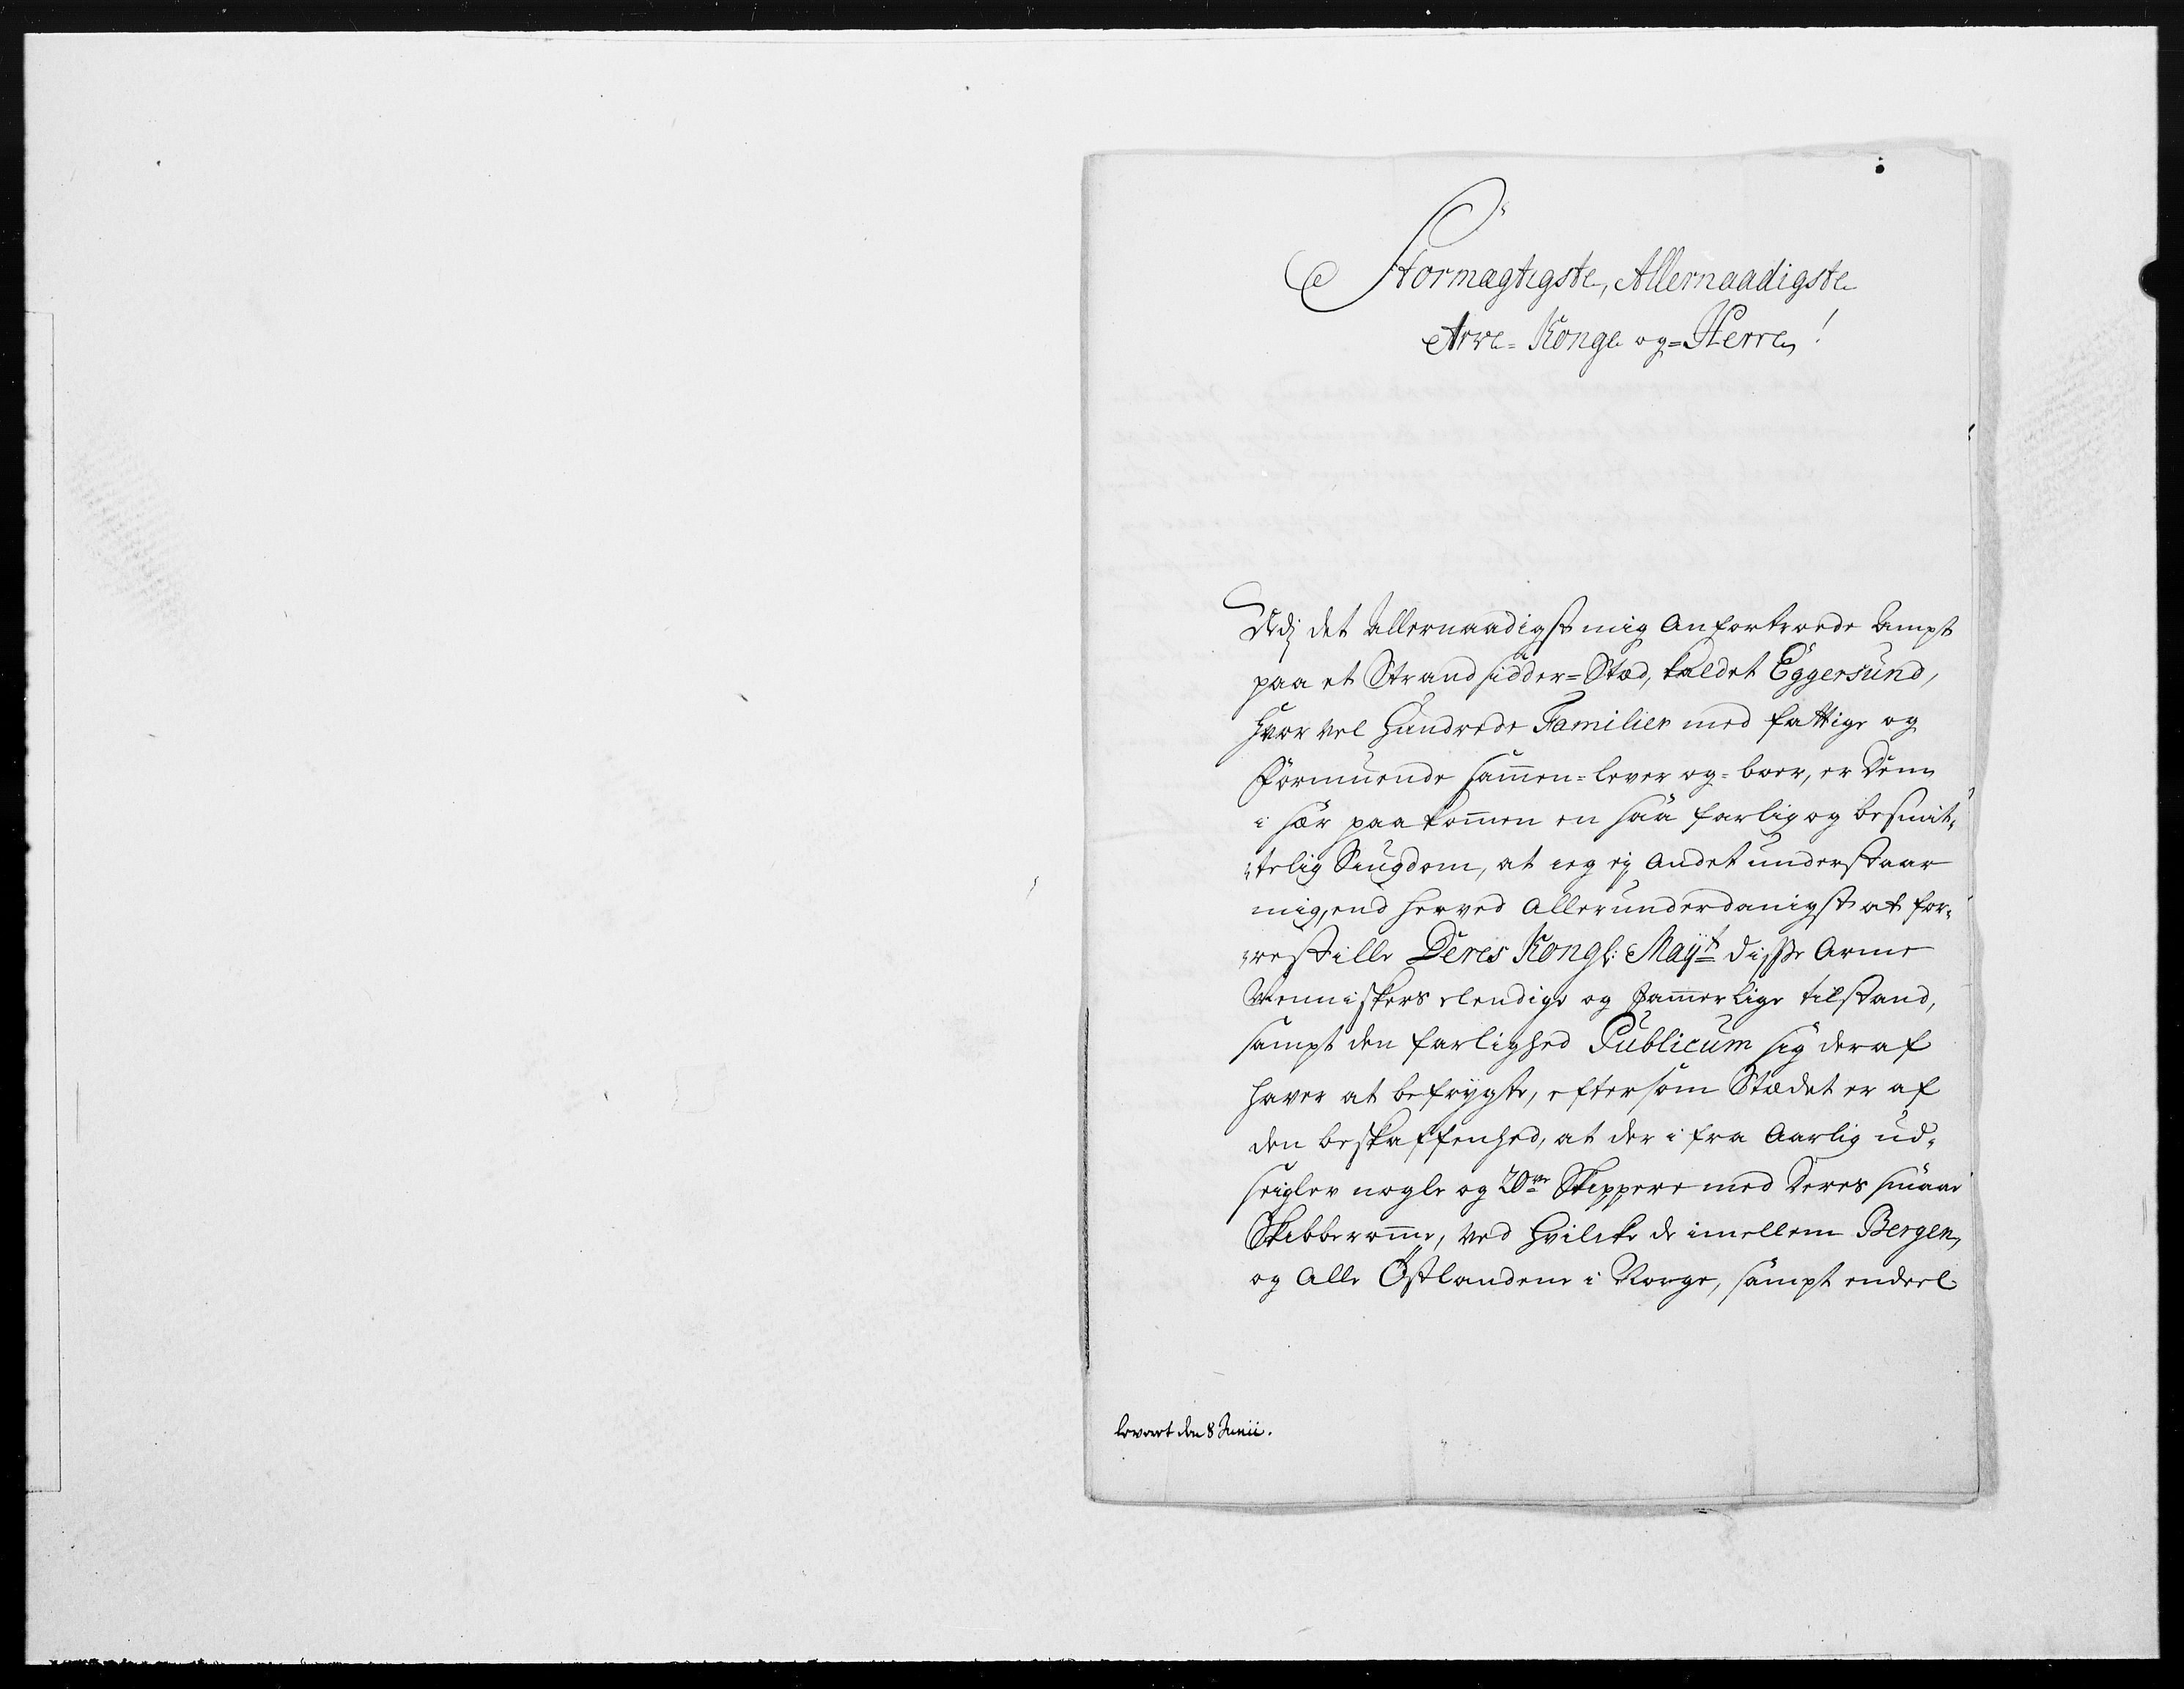 Stormægtigste, Allernaadigste
Arve-Konge og-Herre!
Udj det allernaadigst mig anfortroede Ampt
paa et Strandsidder-Stæd, kaldet Eggersund,
hvor vel hundrede Familier med fattige og
formuende sammen-lever og-boer, er Dem
i hær paakommen en saa farlig og besmit-
telig Siugdom, at ieg ej andet understaar
mig, end herved allerunderdanigst at for-
restille Deres Kongl: Mayt disse arme
Menniskers elendige og Jammerlige tilstand,
sampt den farlighed Publicum sig deraf
haver at befrygte, eftersom Stædet er af
den beskaffenhed, at der i fra aarlig ud-
seigler nogle og 20ve Skippere med deres smaae
Skibberomme, ved hvilcke de imellem Bergen,
og alle Østlandene i Norge, sampt endeel
leveret den 8 Junii.